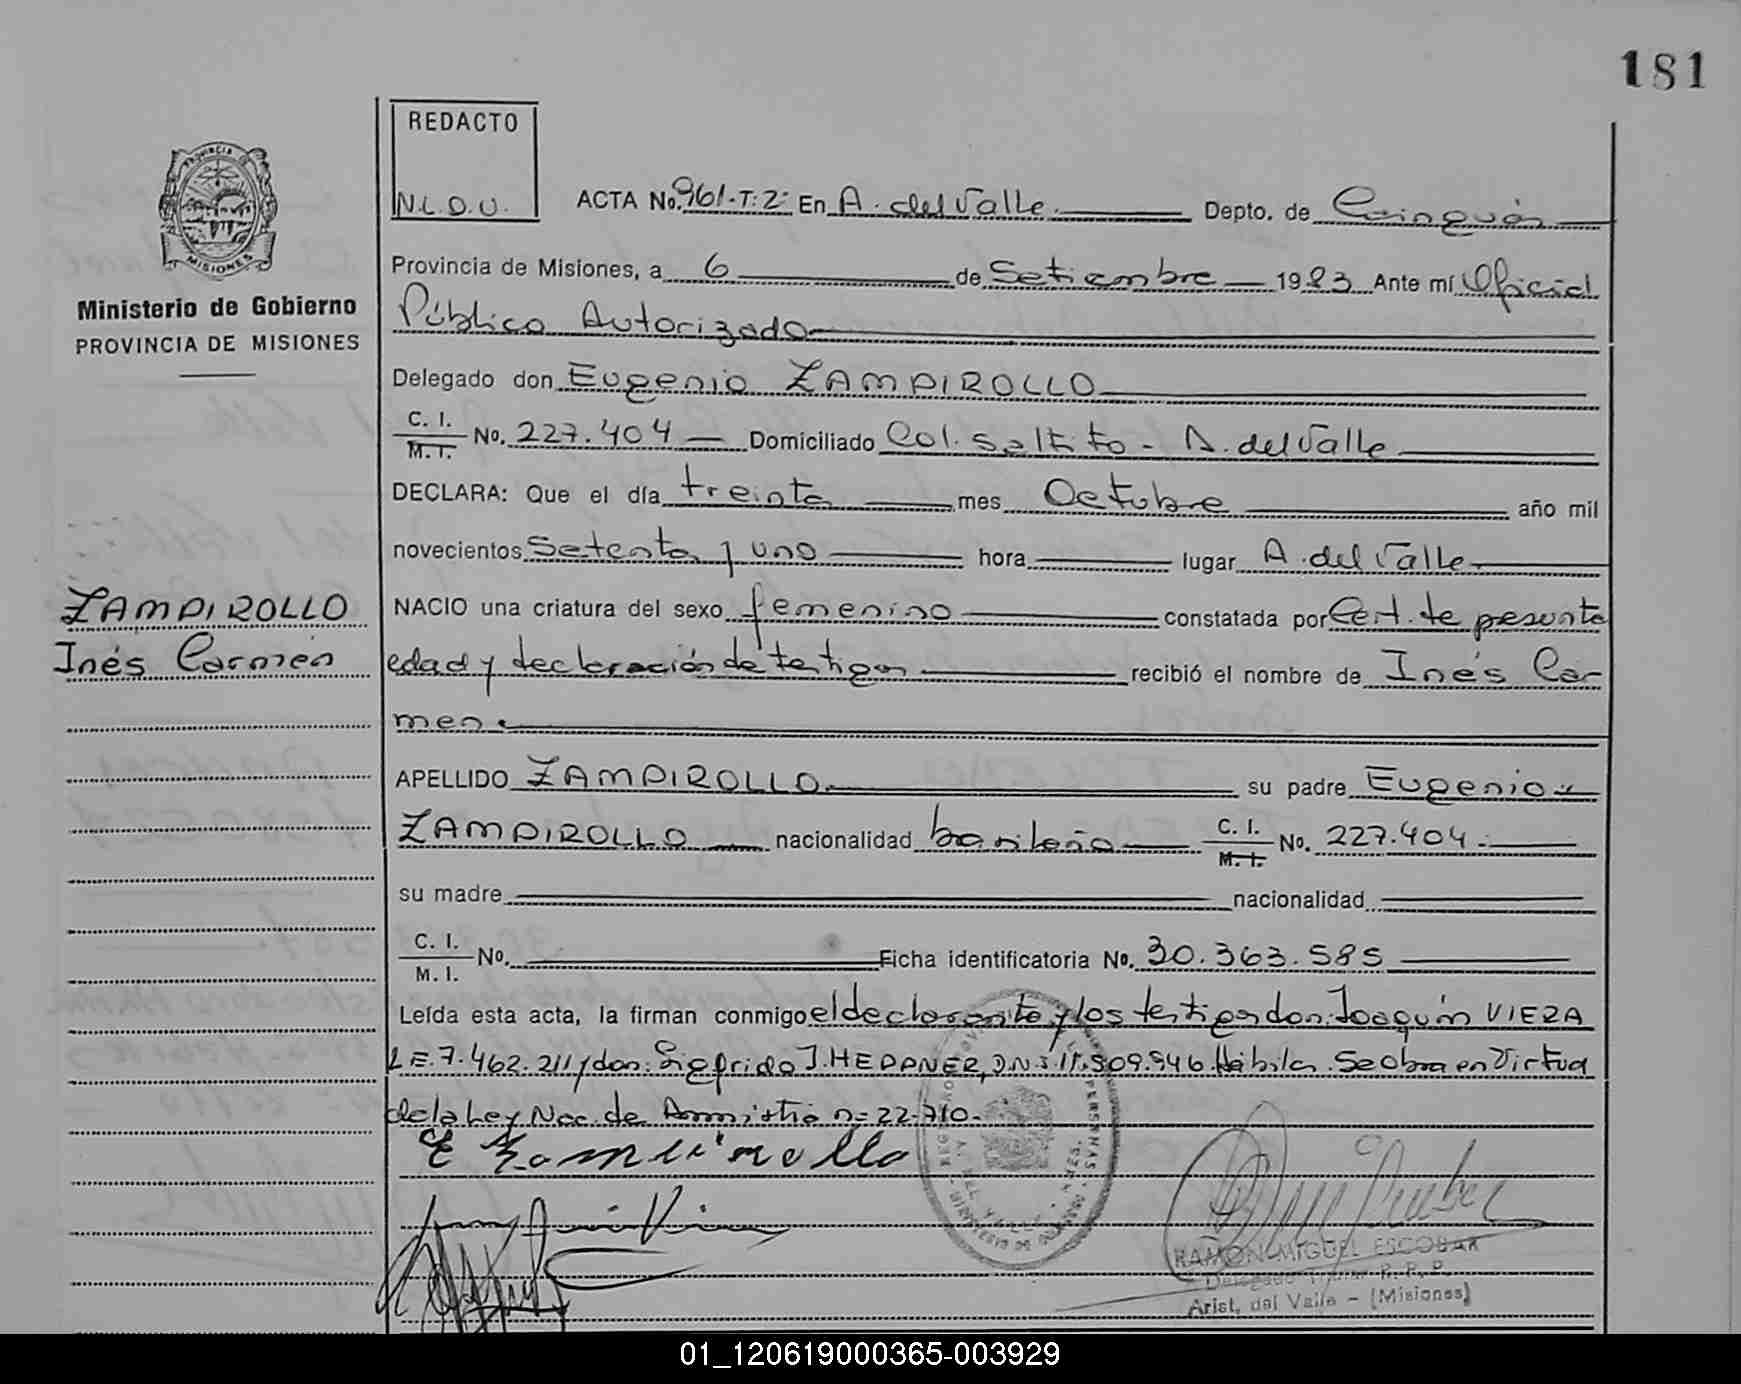 181
REDACTO
N.L.D.U.
PROVINCIA DE
MISIONES
Ministerio de Gobierno
PROVINCIA DE MISIONES
ACTA No. 961-T:2: En A. del Valle Depto. de Cainguás
Provincia de Misiones, a 6 de Setiembre 1983 Ante mí Oficial
Público Autorizado
Delegado don Eugenio ZAMPIROLLO
C. I. / M. I. No. 227.404 Domiciliado Col. Saltito - A. del Valle
DECLARA: Que el día treinta mes Octubre año mil
novecientos setenta y uno hora lugar A. del Valle
ZAMPIROLLO
Inés Carmen
NACIO una criatura del sexo femenino constatada por Cert. de presunta
edad y declaración de testigos recibió el nombre de Inés Car-
men.
APELLIDO ZAMPIROLLO su padre Eugenio
ZAMPIROLLO nacionalidad brasileña C. I. / M. I. No. 227.404.
su madre nacionalidad
C. I. / M. I. No. Ficha identificatoria No. 30.363.585
Leída esta acta, la firman conmigo el declarante y los testigos don: Joaquín VIERA
L.E. 7.462.211 y don: Sigfrido J. HEPPNER, D.N.I. 11.909.946. Hábiles. Se obra en Virtud
de la Ley Nac. de Amnistía nº 22.710.
E Zampirollo
RAMON MIGUEL ESCOBAR
Delegado Titular R. P. P.
Arist. del Valle - (Misiones)
01_120619000365-003929